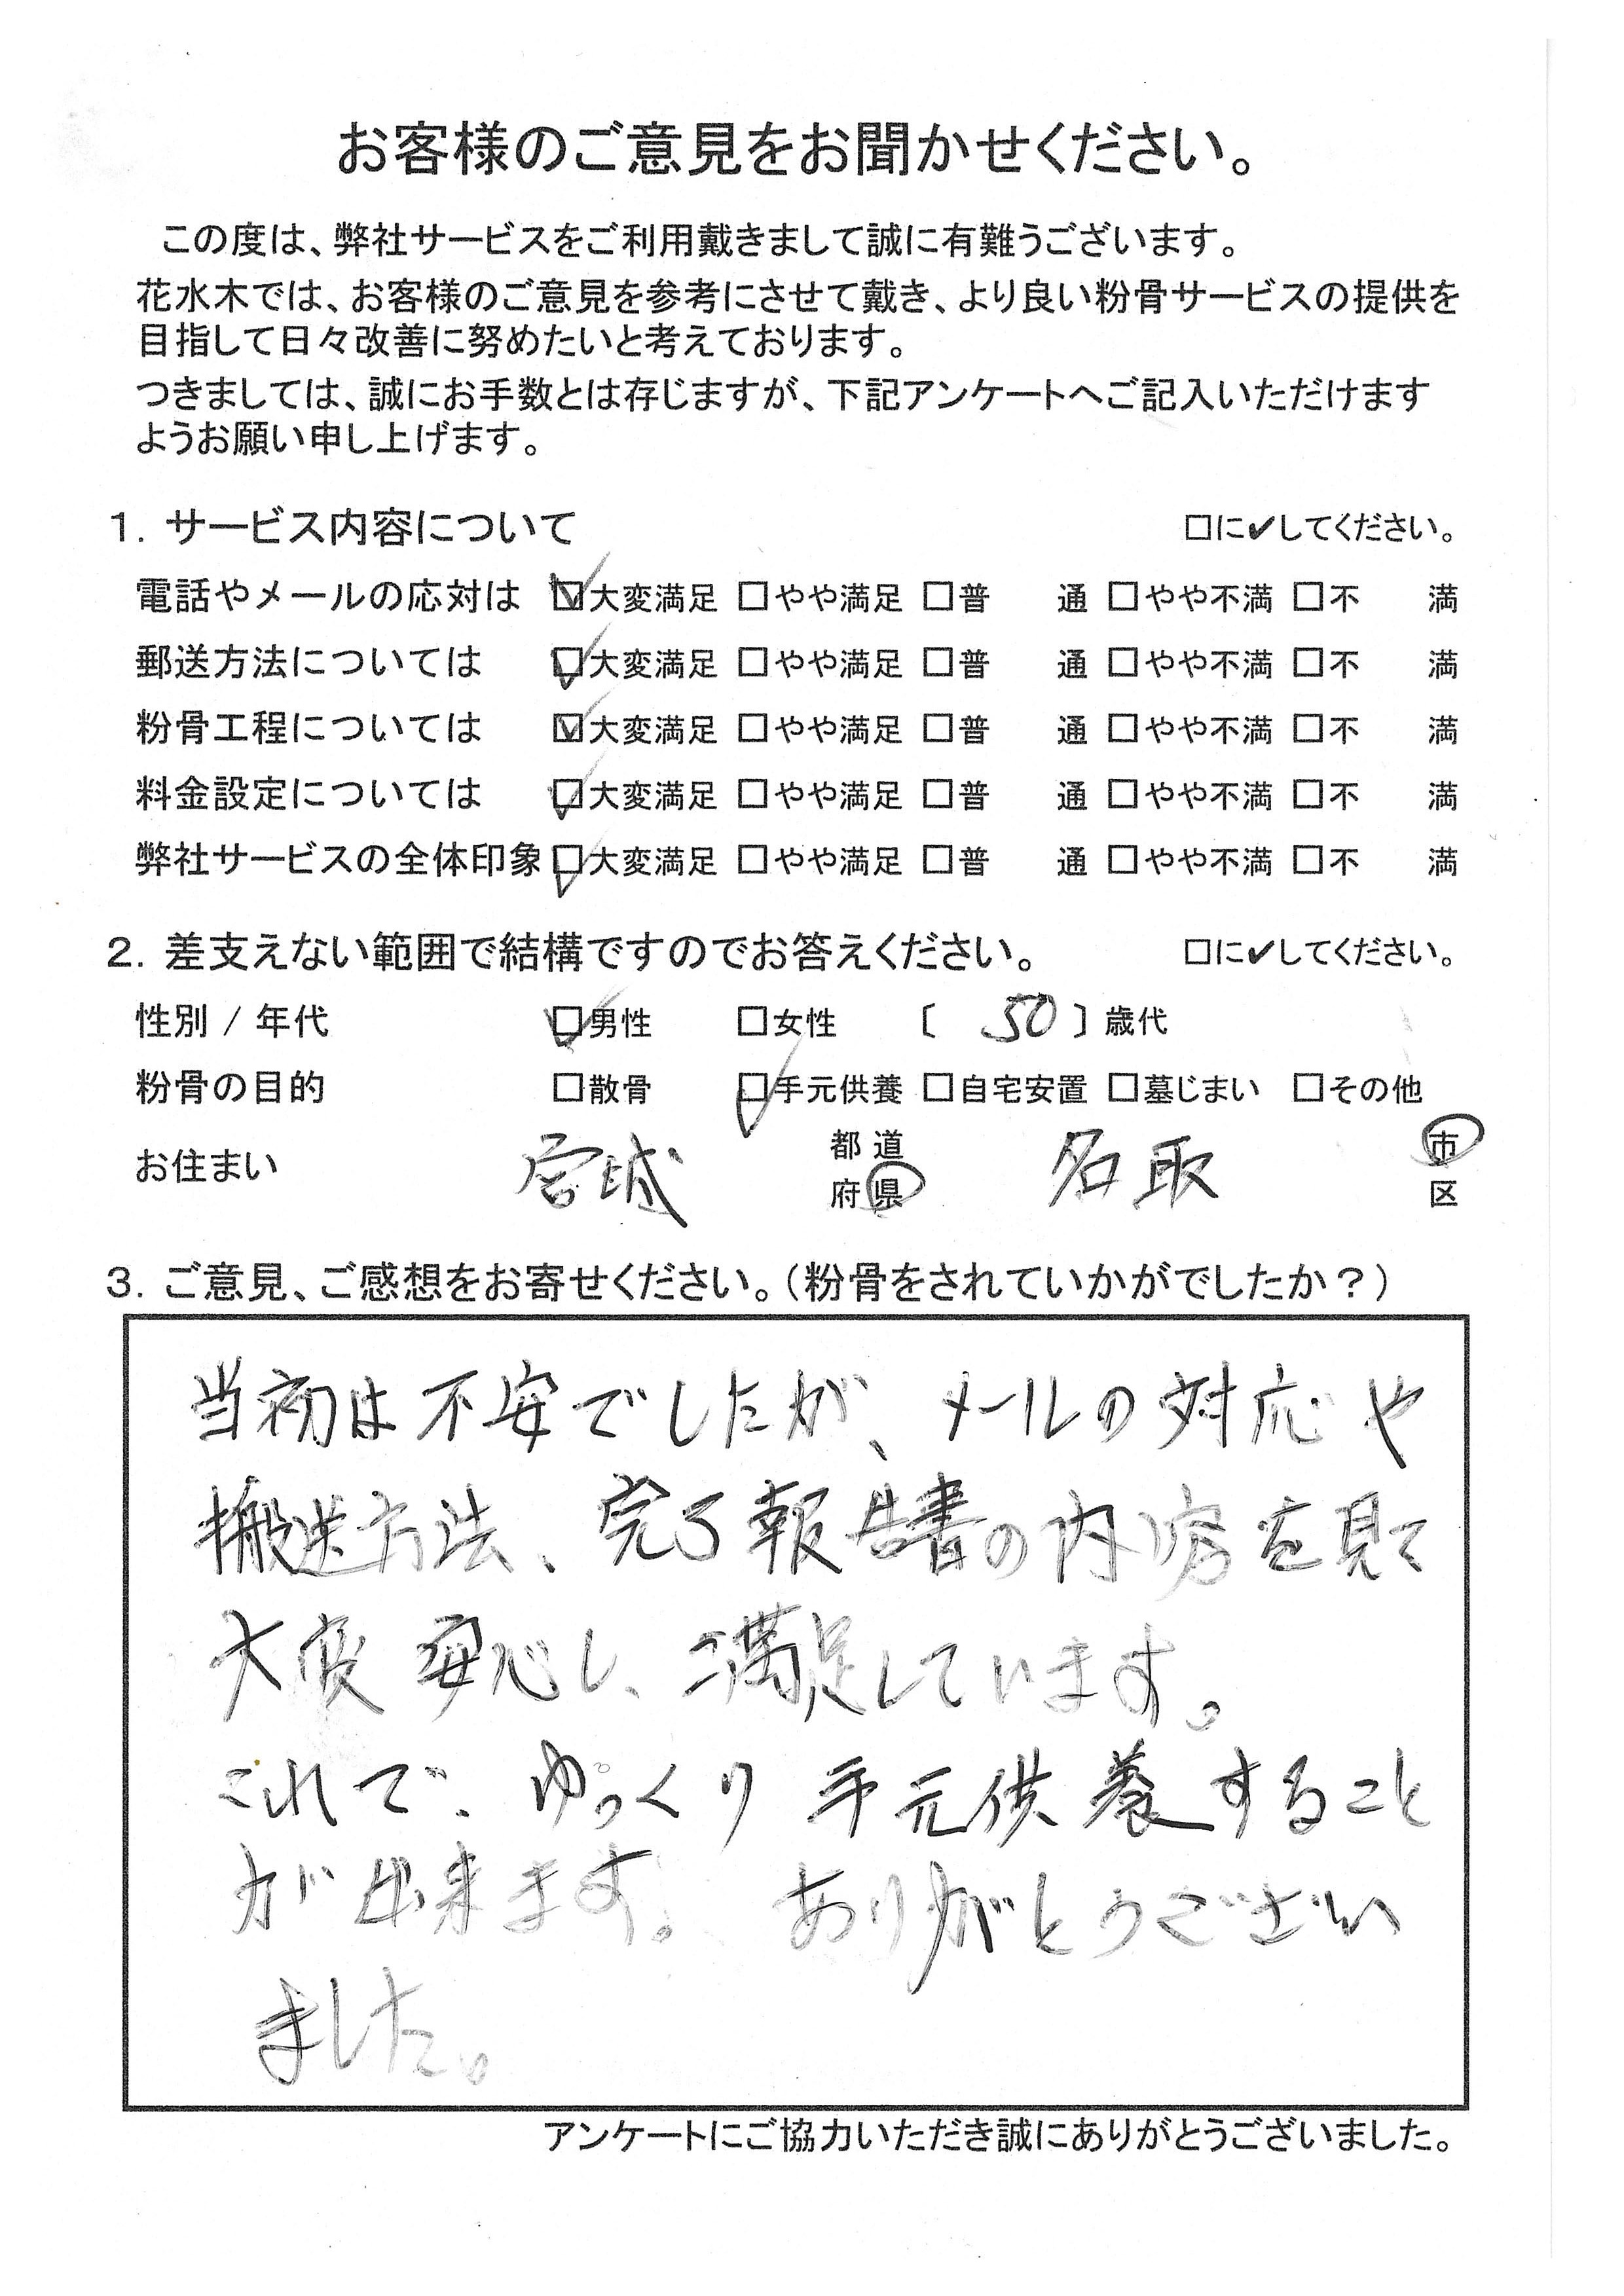 お客様のご意見をお聞かせください。
この度は、弊社サービスをご利用戴きまして誠に有難うございます。
花水木では、お客様のご意見を参考にさせて戴き、より良い粉骨サービスの提供を
目指して日々改善に努めたいと考えております。
つきましては、誠にお手数とは存じますが、下記アンケートへご記入いただけます
ようお願い申し上げます。
1. サービス内容について □に✔してください。
電話やメールの応対は ☑大変満足 □やや満足 □普 通 □やや不満 □不 満
郵送方法については ☑大変満足 □やや満足 □普 通 □やや不満 □不 満
粉骨工程については ☑大変満足 □やや満足 □普 通 □やや不満 □不 満
料金設定については ☑大変満足 □やや満足 □普 通 □やや不満 □不 満
弊社サービスの全体印象 ☑大変満足 □やや満足 □普 通 □やや不満 □不 満
2. 差支えない範囲で結構ですのでお答えください。 □に✔してください。
性別 / 年代 ☑男性 □女性 〔 50 〕歳代
粉骨の目的 □散骨 ☑手元供養 □自宅安置 □墓じまい □その他
お住まい 宮城 都道府県 名取 市区
3. ご意見、ご感想をお寄せください。（粉骨をされていかがでしたか？）
当初は不安でしたが、メールの対応や
搬送方法、完了報告書の内容を見て
大変安心し、満足しています。
これで、ゆっくり手元供養すること
が出来ます。ありがとうござい
ました。
アンケートにご協力いただき誠にありがとうございました。